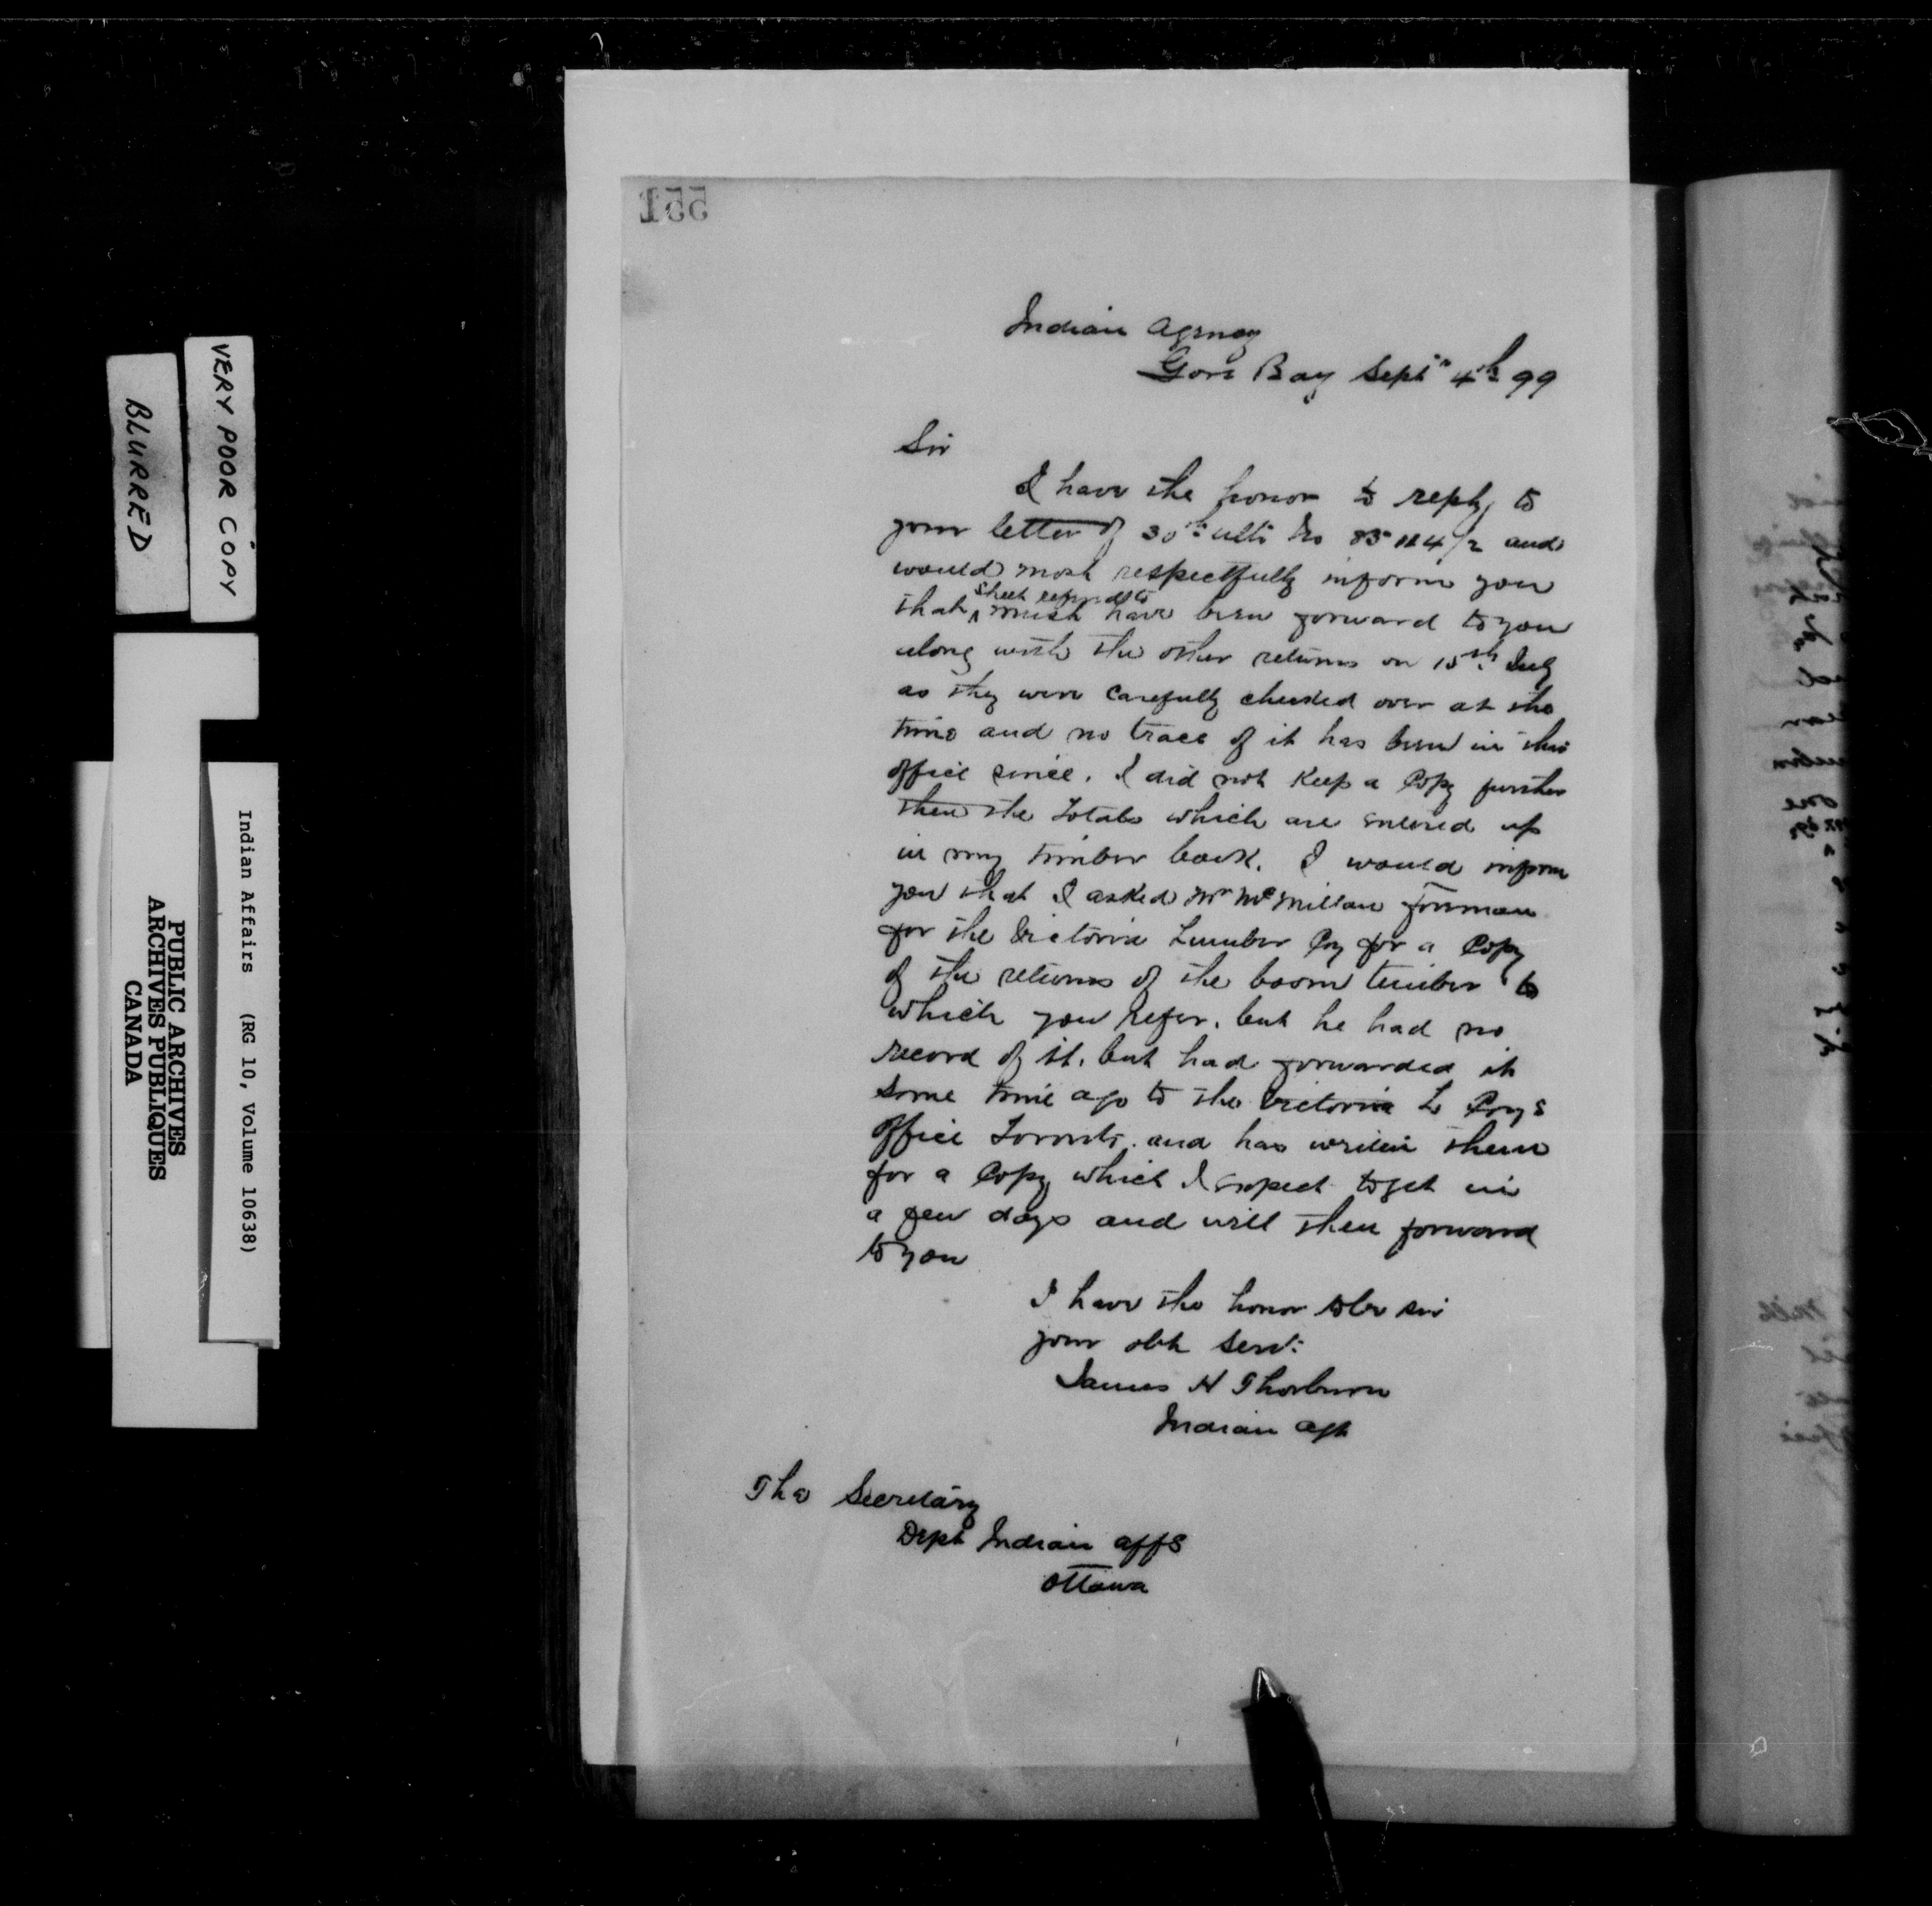 VERY POOR COPY
BLURRED
Indian Affairs (RG 10, Volume 10638)
PUBLIC ARCHIVES
ARCHIVES PUBLIQUES
CANADA
551
Indian Agency
Gore Bay Sept 4th 99
Sir
I have the honor to reply to
your letter of 30th ulto No and
would most respectfully inform you
that sheet referred to must have been forward to you
along with the other returns on 15th July
as they were carefully checked over at the
time and no trace of it has been in this
office since. I did not Keep a Copy further
then the totals which are entered up
in my timber book. I would inform
you that I asked Mr McMillan foreman
for the Victoria Lumber Coy for a Copy
of the returns of the boom timber to
which you refer. but he had no
record of it. but had forwarded it
some time ago to the Victoria L Coys
office Toronto. and has writen them
for a Copy which I expect to get in
a few days and will then forward
to you
I have the honor to be sir
your obt Servt
James H Thorburn
Indian Agt
The Secretary
Dept Indian affs
Ottawa